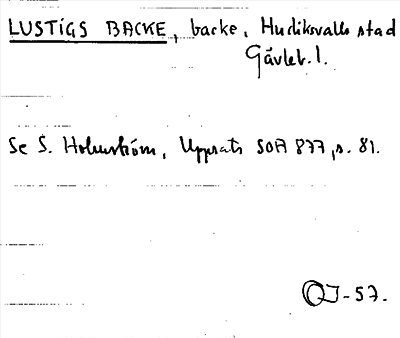 LUSTIGS BACKE, backe, Hudiksvalls stad
Gävleb. l.
Se S. Holmström, Uppsats SOA 877, s. 81.
OJ-57.